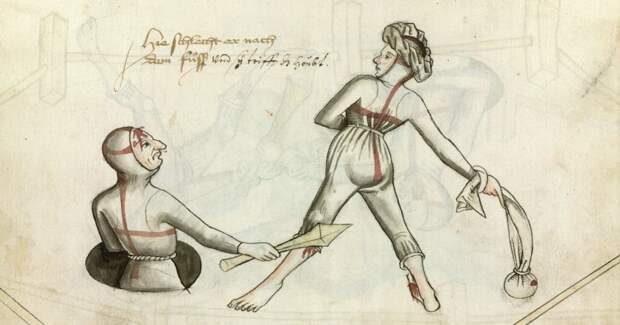 Hie schlecht er nach
dem fuss vnd sy triff houbt.